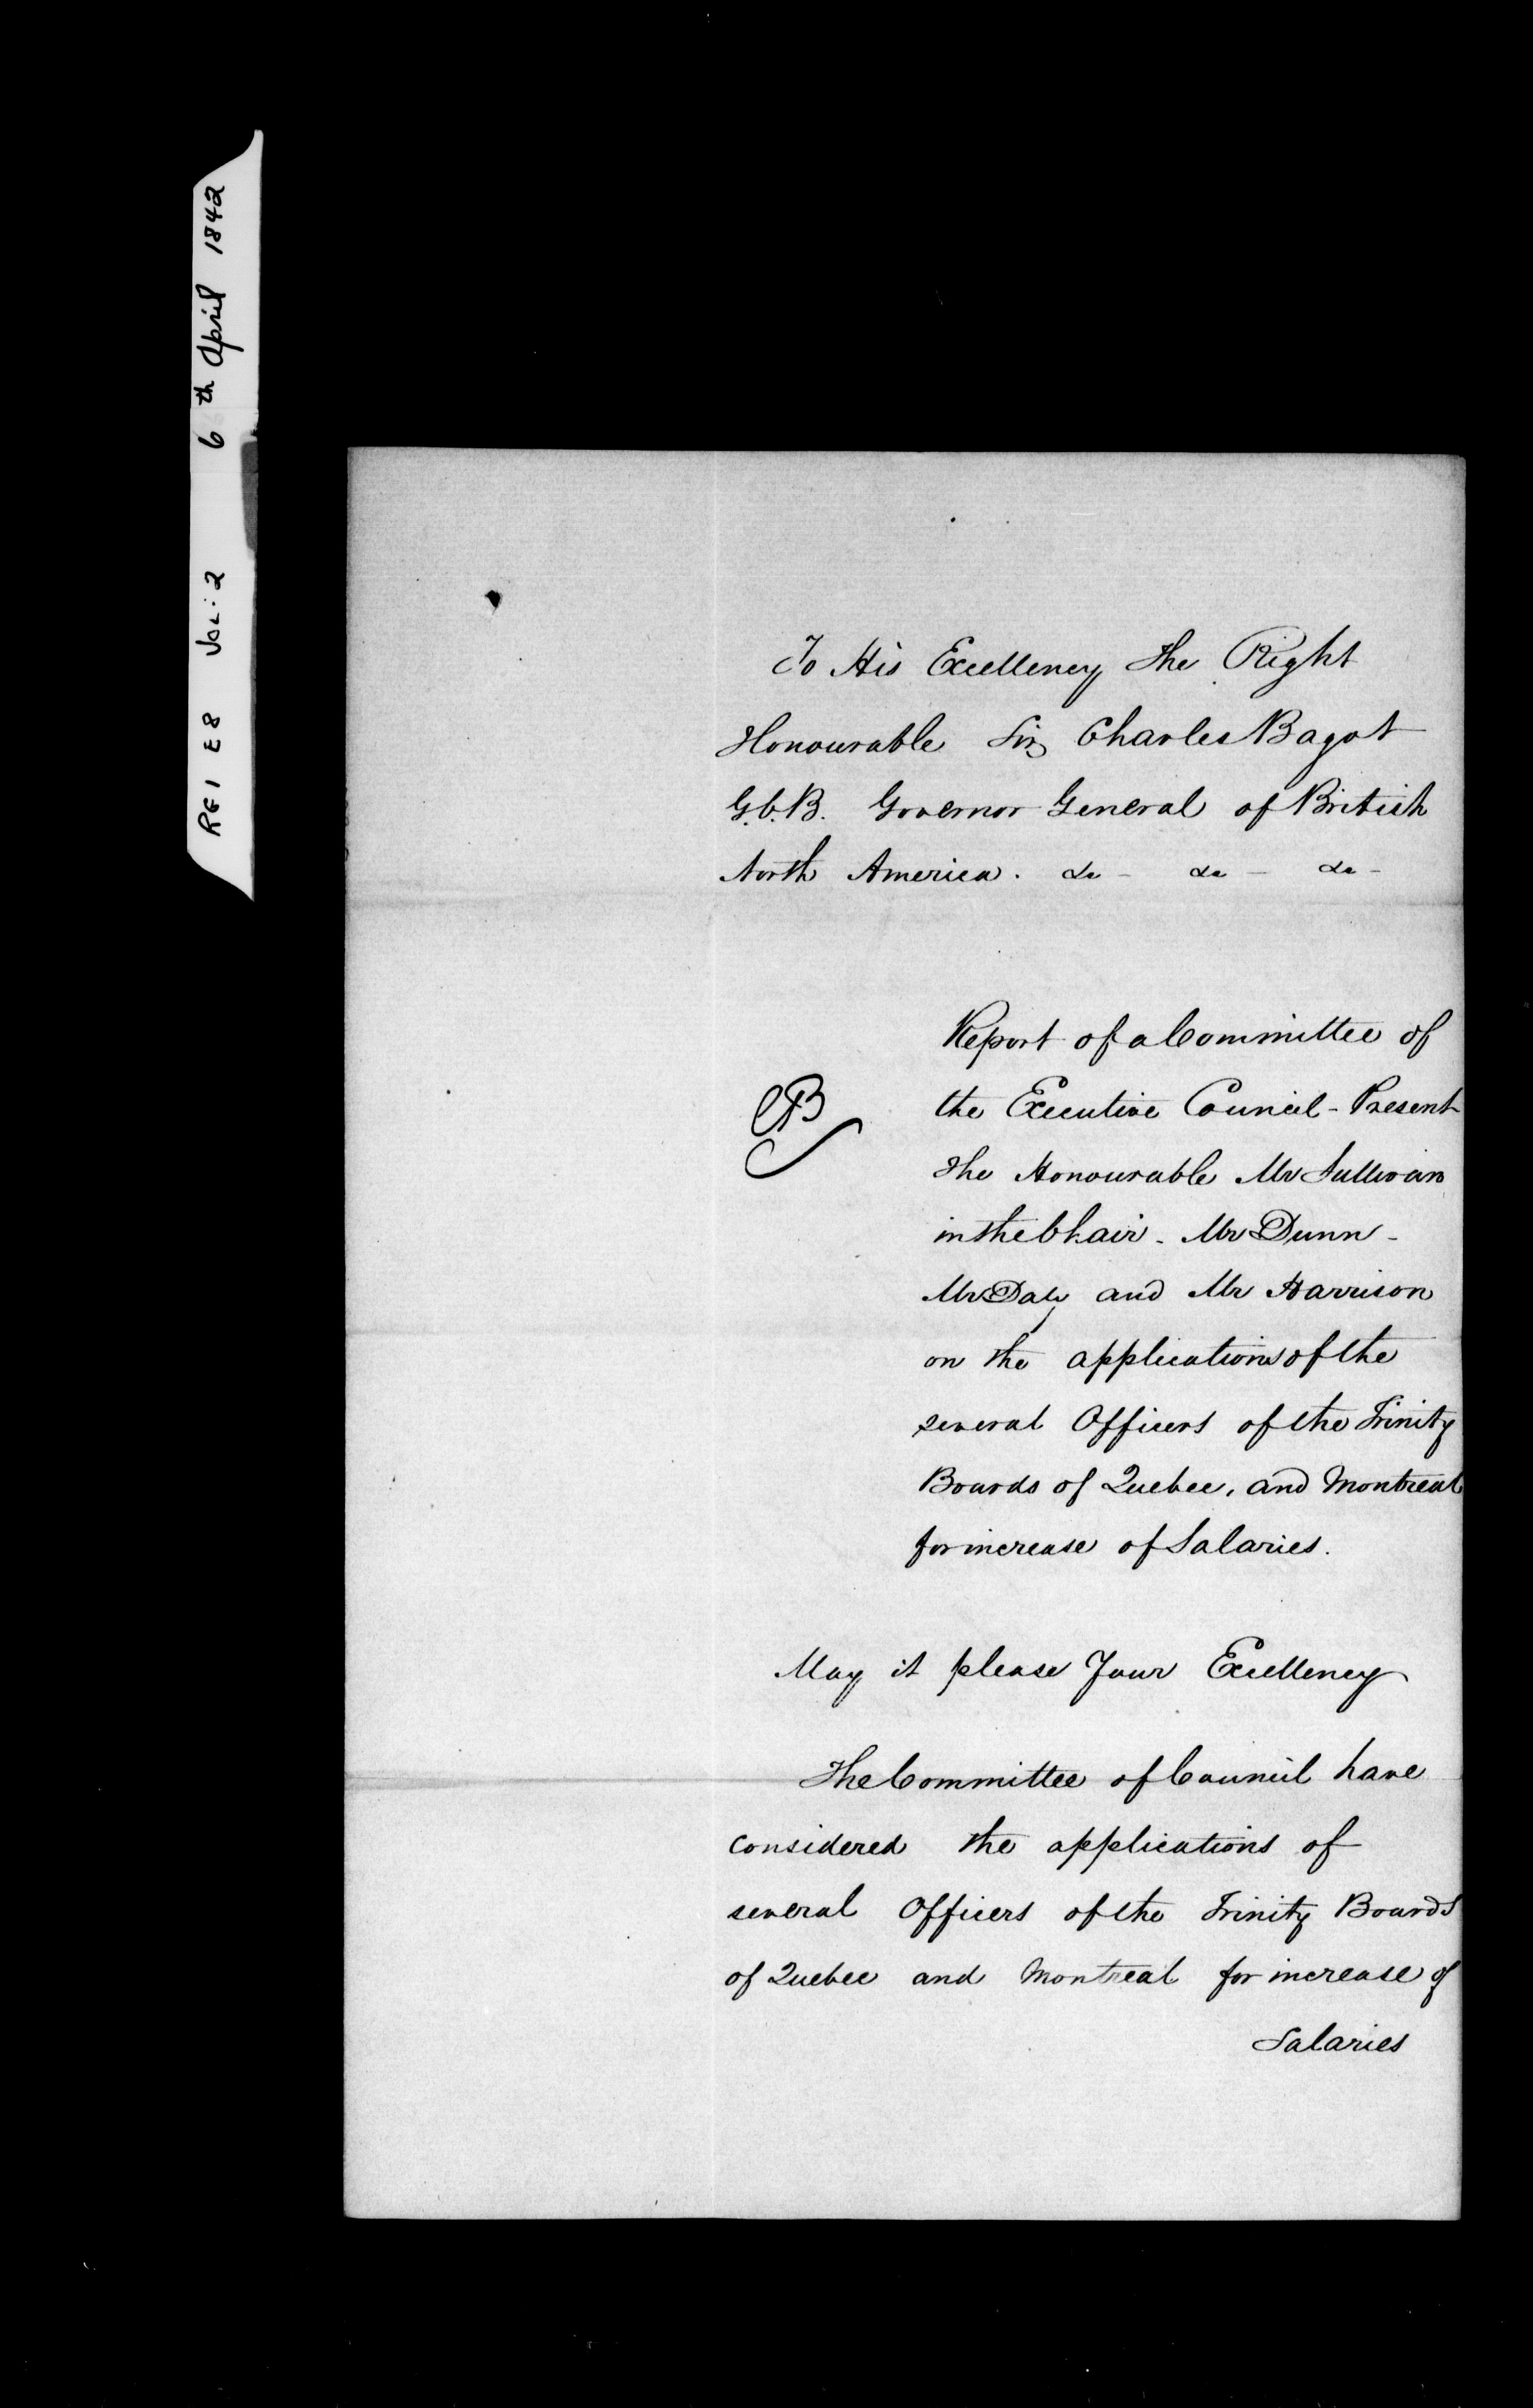 RG1 E8 Vol: 2 6th April 1842
To His Excellency The Right
Honourable Sir Charles Bagot
G.C.B. Governor General of British
North America. &c - &c - &c -
Report of a Committee of
the Executive Council - Present
The Honourable Mr Sullivan
in the Chair - Mr Dunn -
Mr Daly and Mr Harrison
on the applications of the
several Officers of the Trinity
Boards of Quebec, and Montreal
for increase of Salaries.
CB
May it please Your Excellency
The Committee of Council have
considered the applications of
several Officers of the Trinity Boards
of Quebec and Montreal for increase of
Salaries